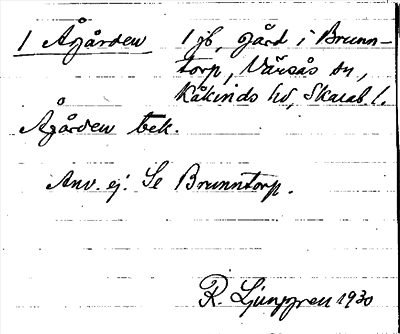 1 Ågården 1 jb, gård i Brunn-
torp, Värsås sn,
Kåkinds hd, Skarab l.
Ågården bek.
Anv. ej. Se Brunntorp.
R. Ljunggren 1930